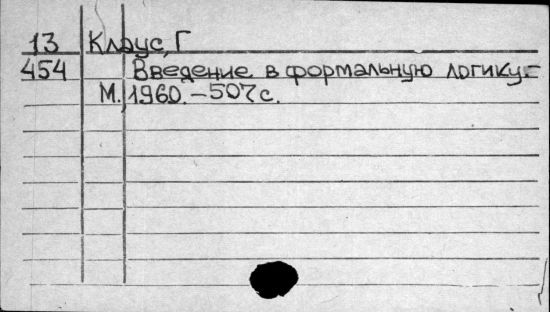 13 Клаус, Г
454 Введение в формальную логику.-
М., 1960.-507с.